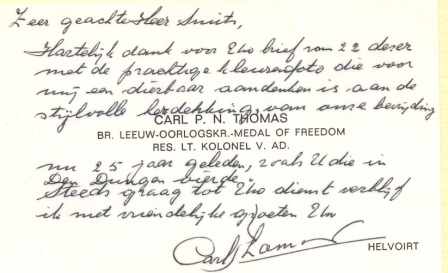 Zeer geachte Heer Smits,
Hartelijk dank voor Uw brief van 22 dezer
met de prachtige kleurenfoto die voor
mij een dierbaar aandenken is aan de
stijlvolle herdenking van onze bevrijding
CARL P. N. THOMAS
BR. LEEUW-OORLOGSKR.-MEDAL OF FREEDOM
RES. LT. KOLONEL V. AD.
nu 25 jaar geleden, zoals U die in
Den Dungen vierde.
Steeds graag tot Uw dienst verblijf
ik met vriendelijke groeten Uw
Carl Thomas
HELVOIRT